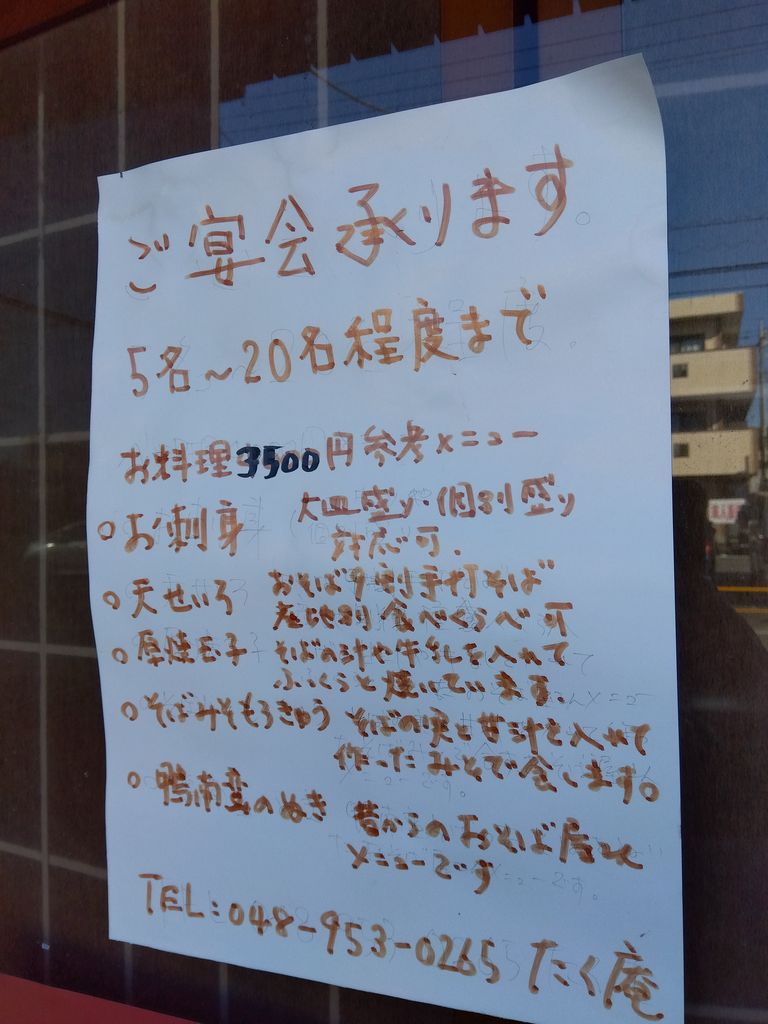 ご宴会承ります。
5名～20名程度まで
お料理3500円参考メニュー
○お刺身 大皿盛り・個別盛り
対応可.
○天せいろ おそば9割手打そば
産地別食べくらべ可
○厚焼玉子 そばの汁や牛乳を入れて
ふっくらと焼いています
○そばみそもろきゅう そばの実と甘汁を入れて
作ったみそで食します。
○鴨南蛮のぬき 昔からのおそば屋
メニューです
TEL:048-953-0265 たく庵